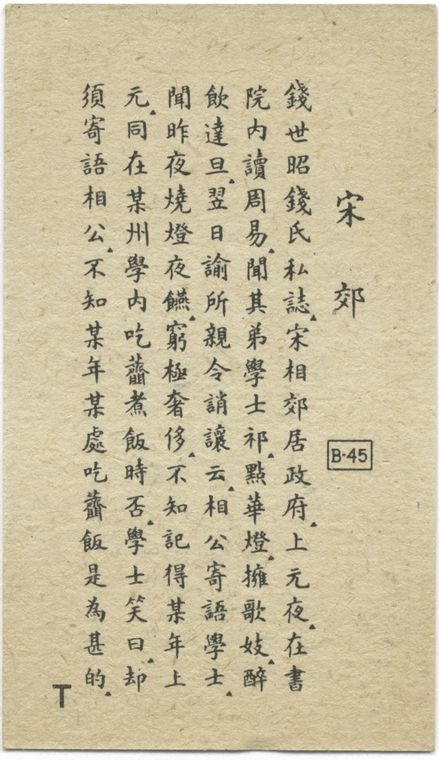 宋郊
B-45
錢世昭錢氏私誌▲宋相郊居政府▲上元夜▲在書
院內讀周易▲聞其弟學士祁▲點華燈▲擁歌妓▲醉
飲達旦▲翌日諭所親令誚讓云▲相公寄語學士▲
聞昨夜燒燈夜䜩▲窮極奢侈▲不知記得某年上
元▲同在某州學內吃虀煮飯時否▲學士笑曰▲却
須寄語相公▲不知某年某處吃虀飯是為甚的▲
T